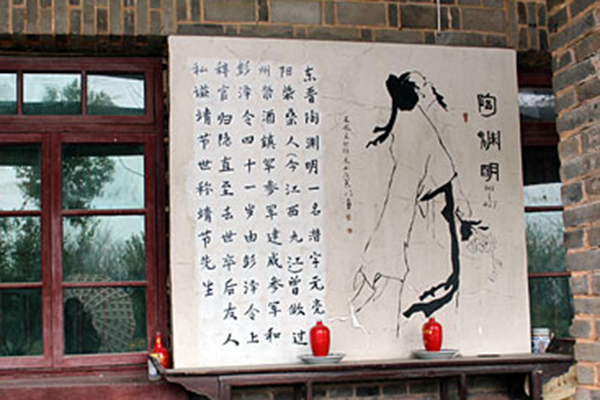 陶渊明
东晋陶渊明一名潜字元亮
阳柴桑人(今江西九江)曾做过
州祭酒镇军参军建威参军和
彭泽令四十一岁由彭泽令上
辞官归隐直至去世卒后友人
私谥靖节世称靖节先生